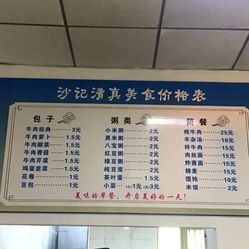 沙记清真美食价格表
包子
牛肉经典 3元
牛肉萝卜 1.5元
牛肉酸菜 1.5元
牛肉香菇 1.5元
牛肉芹菜 1.5元
鸡蛋韭菜 1.5元
花卷 1元
豆包 1元
粥类
小米粥 2元
黑米粥 2元
八宝粥 2元
红豆粥 2元
绿豆粥 2元
纯豆浆 2元
茶叶蛋 1.5元
小菜 (小)1元 (大)3元
简餐
炖牛肉 25元
羊杂汤 10元
拌牛肉 15元
肉丝面 15元
炸酱面 15元
烧麦
馄饨 10元
米饭 2元
美味的早餐，开启美好的一天！